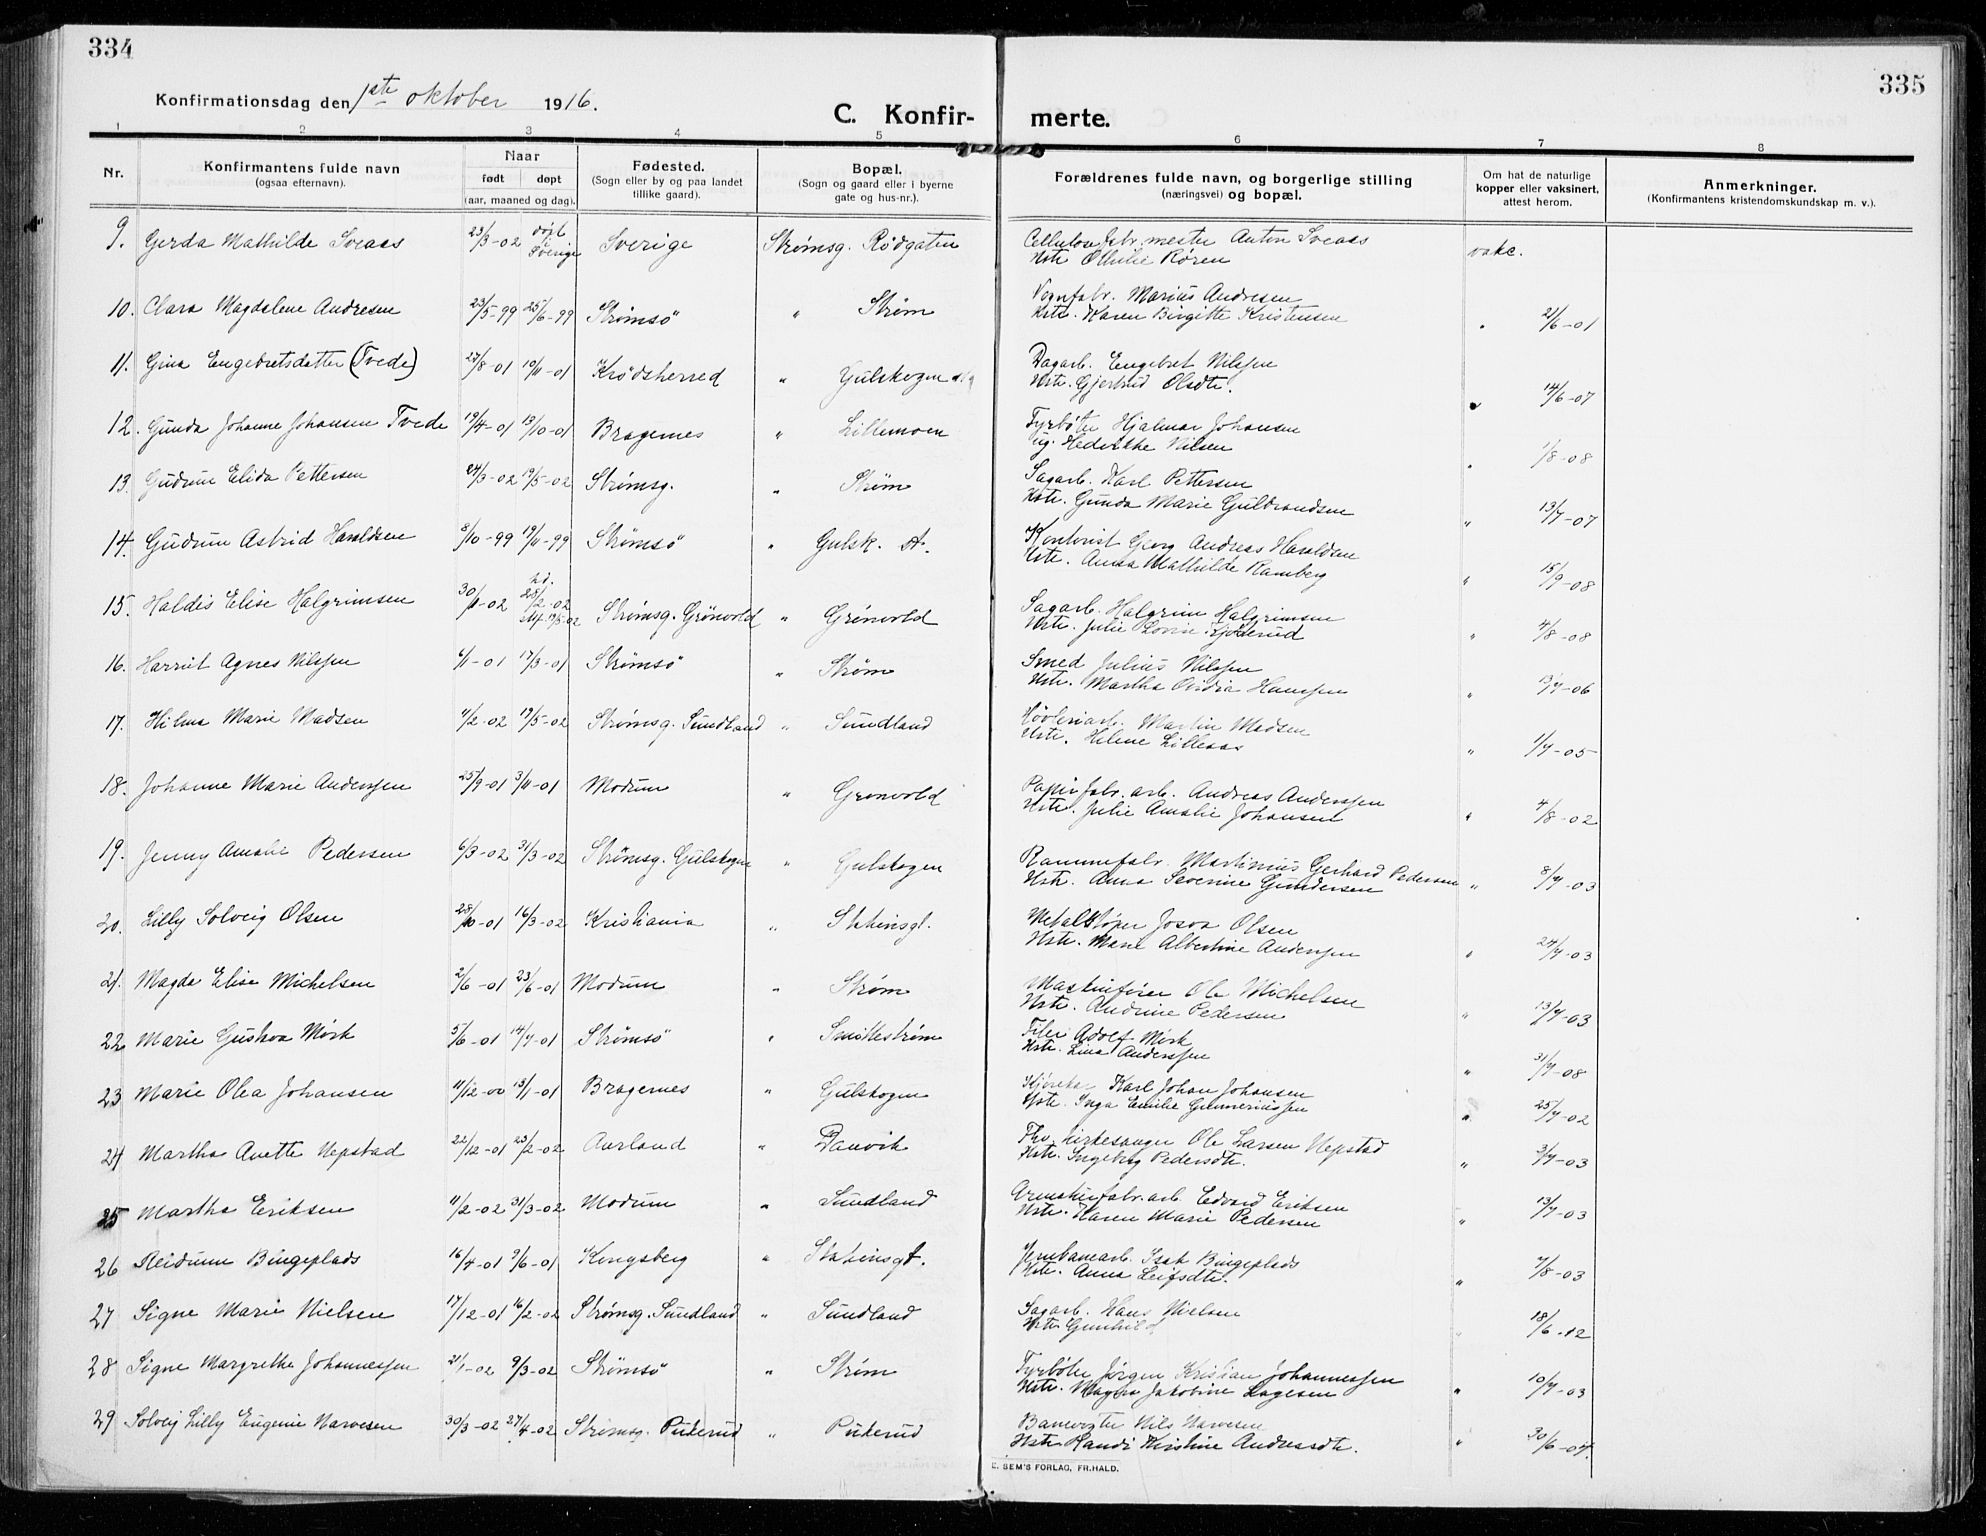 334
335
Konfirmationsdag den 1ste oktober 1916.
C. Konfir- merte.
1 2 3 4 5 6 7 8
Nr. Konfirmantens fulde navn (ogsaa efternavn). Naar født døpt (aar, maaned og dag). Fødested. (Sogn eller by og paa landet tillike gaard). Bopæl. (Sogn og gaard eller i byerne gate og hus-nr.). Forældrenes fulde navn, og borgerlige stilling (næringsvei) og bopæl. Om hat de naturlige kopper eller vaksinert, attest herom. Anmerkninger. (Konfirmantens kristendomskundskap m. v.).
9. Gerda Mathilde Sveaas 23/3-02 døpt i Sverige Sverige Strømsg. Rødgaten Cellulosefabr.mester Anton Sveaas
Hstr. Ottilie Røren vakc.
10. Clara Magdalene Andresen 23/5-99 25/6-99 Strømsö " Strøm Vognfabr. Marius Andresen
Hstr. Karen Birgitte Kristensen " 21/6-01
11. Gina Engebretsdatter (Tvede) 27/8-01 10/11-01 Krødsherred " Gulskogen Dagarb. Engebret Nilssen
Hstr. Gjertrud Olsdtr. " 14/6-07
12. Gunda Johanne Johansen Tvede 19/4-01 13/10-01 Bragernes " Lillemoen Fyrbøter Hjalmar Johansen
ug. Nilsen " 1/8-08
13. Gudrun Elida Pettersen 24/3-02 19/5-02 Strømsg. " Strøm Sagarb. Karl Pettersen
Hstr. Gunda Marie Guldbrandsen " 13/7-07
14. Gudrun Astrid Haraldsen 8/10-99 19/11-99 Strømsö " Gulsk. A. Kontorist Georg Andreas Haraldsen
Hstr. Anna Mathilde Ramberg " 15/9-08
15. Haldis Elise Halgrimsen 30/1-02 hd. 28/2-02 19/5-02 Strømsg. Grönvold " Grönvold Sagarb. Halgrim Halgrimsen
Hstr. Julie Lovise " 4/8-08
16. Harriet Agnes Nilssen 6/1-01 17/3-01 Strømsö " Strøm Smed Julius Nilssen
Hstr. Martha Ovidia Hanssen " 13/7-06
17. Hilma Marie Madsen 4/2-02 19/5-02 Strømsg. Sundland " Sundland Høvleriarb. Martin Madsen
Hstr. Helene Lilleaas " 1/7-05
18. Johanne Marie Anderssen 25/9-01 3/11-01 Modum " Grønvold Papirfabr. arb. Andreas Anderssen
Hstr. Julie Amalie Johansen " 4/8-02
19. Jenny Amalie Pedersen 6/3-02 31/3-02 Strömsg. Gulskogen " Gulskogen Rammefabr. Martinius Gerhard Pedersen
Hstr. Anna Severine Gundersen " 8/7-03
20. Lilly Solveig Olsen 28/10-01 16/3-02 Kristiania " Stationsgt. Metalstøper Josva Olsen
Hstr. Marie Albertine Anderssen " 24/7-03
21. Magda Elise Michelsen 2/6-01 23/6-01 Modum " Strøm Maskinfører Ole Michelsen
Hstr. Andrine Pedersen " 13/7-03
22 Marie Gustava Mørk 5/6-01 14/7-01 Strømsö " Smithestrøm Filer Adolf Mørk
Hstr. Lina Anderssen " 31/7-08
23 Marie Olea Johansen 11/12-00 13/1-01 Bragernes " Gulskogen Kjørekar Karl Johan Johansen
Hstr. Inga Emilie Gunneriussen " 25/7-02
24 Martha Anette Nepstad 22/12-01 23/2-02 Aurland " Danvik Fhv. kirkesanger Ole Larsen Nepstad
Hstr. Ingeborg Pedersdtr. " 3/7-03
25 Martha Eriksen 11/2-02 31/3-02 Modum " Sundland Armaturfabr.arb. Edvard Eriksen
Hstr. Karen Marie Pedersen " 13/7-03
26 Reidunn Bingeplads 16/4-01 9/6-01 Kongsberg " Stationsgt. Jernbanearb. Isak Bingeplads
Hstr. Anna Leifsdtr. " 7/8-03
27 Signe Marie Nielsen 17/12-01 16/2-02 Strømsg. Sundland " Sundland Sagarb. Hans Nielsen
Hstr. Gunhild " 18/6-12
28 Signe Margrethe Johannessen 21/1-02 9/3-02 Strømsö " Strøm Fyrbøter Jörgen Kristian Johannessen
Hstr. Magda Jakobine Lagesen " 10/7-03
29 Solveig Lilly Eugenie Narvesen 30/3-02 27/4-02 Strømsg. Puterud " Puterud Banevogter Nils Narvesen
Hstr. Randi Kristine Andreasdtr. " 30/6-07.
E. SEM'S FORLAG, FR.HALD.